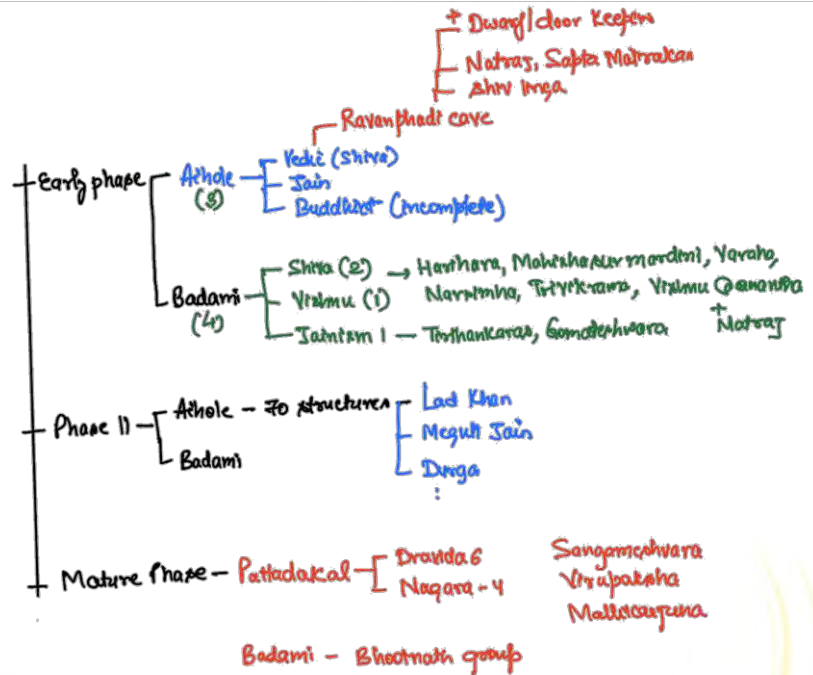 + Dwarf/door keepers
Natraj, Sapta Matrakas
Shiv linga
Ravanphadi cave
Early phase
Aihole
(3)
Vedic (Shiva)
Jain
Buddhist (incomplete)
Badami
(4)
Shiva (2) → Harihara, Mahishasur mardini, Varaha,
Vishnu (1) Narsimha, Trivikrama, Vishnu @ananta
+ Natraj
Jainism 1 – Tirthankaras, Gomateshwara
Phase II
Aihole – 70 structures
Badami
Lad Khan
Meguti Jain
Durga
⋮
Mature Phase – Pattadakal
Dravida 6
Nagara - 4
Sangameshvara
Virupaksha
Mallicarjuna
Badami – Bhootnath group